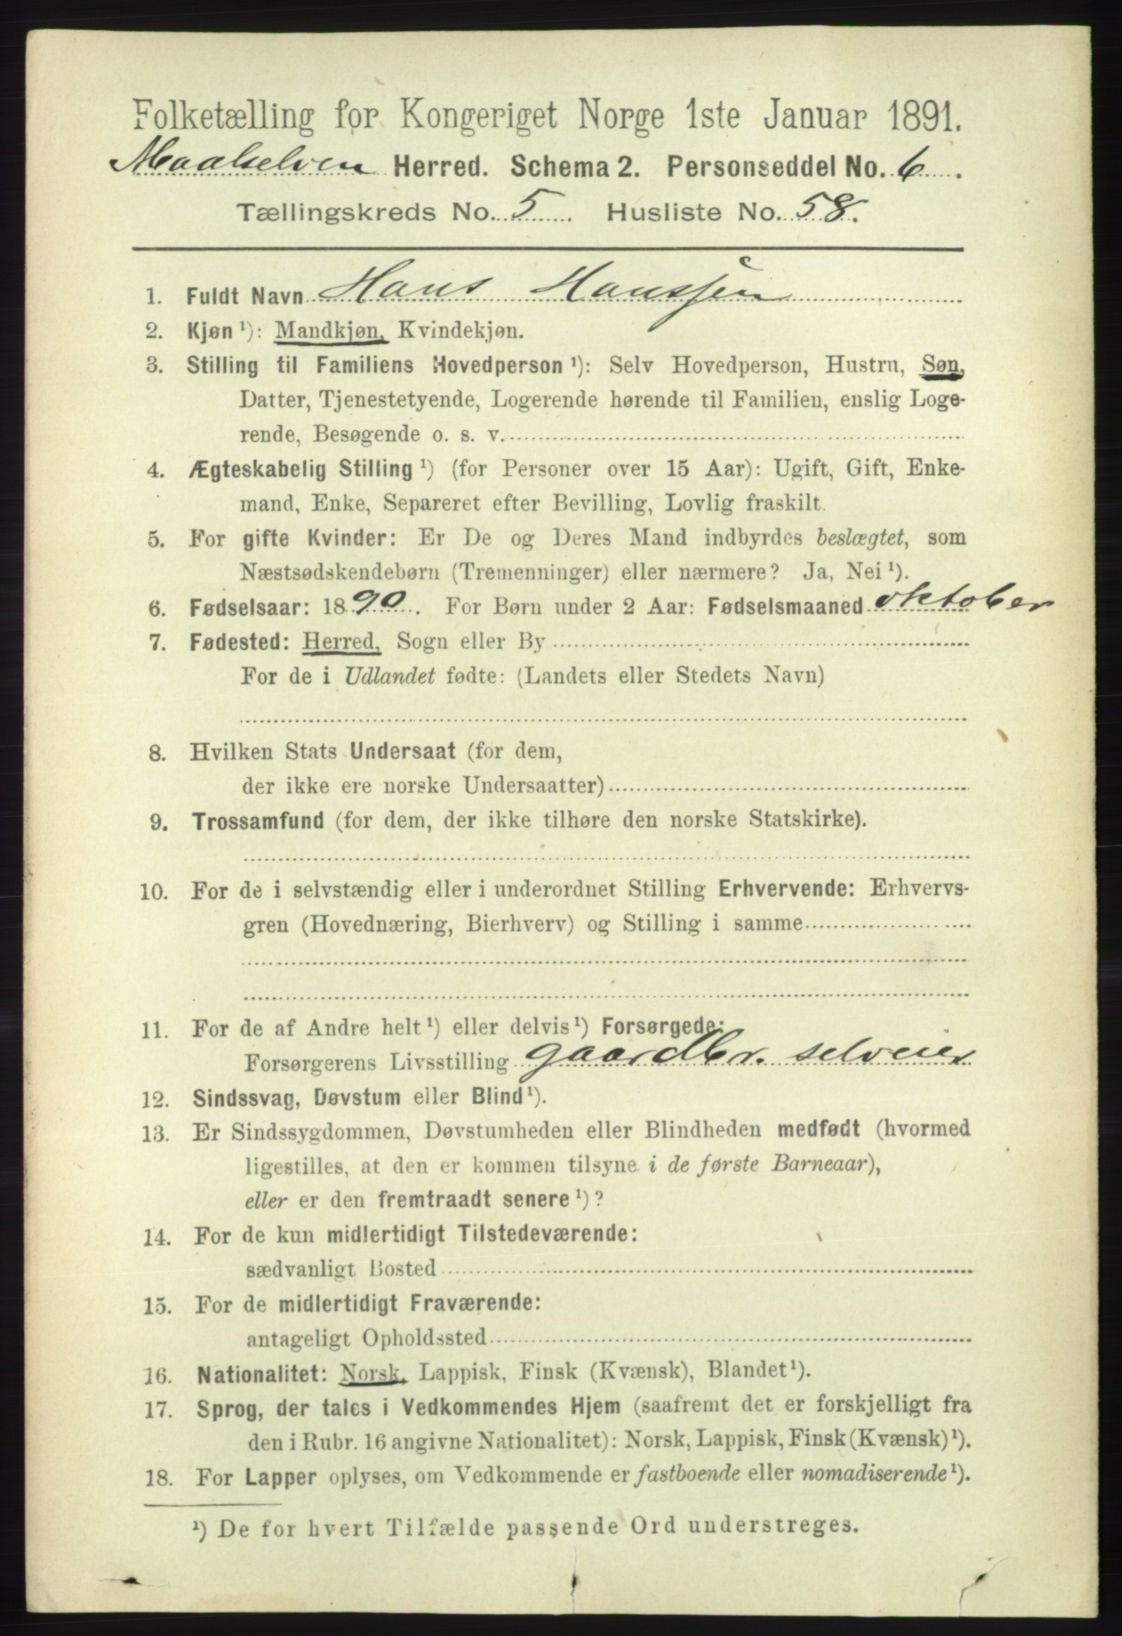 Folketælling for Kongeriget Norge 1ste Januar 1891.
Maalselven Herred. Schema 2. Personseddel No. 6.
Tællingskreds No. 5. Husliste No. 58.
1. Fuldt Navn Hans Hanssen
2. Kjøn ¹): Mandkjøn, Kvindekjøn.
3. Stilling til Familiens Hovedperson ¹): Selv Hovedperson, Hustru, Søn,
Datter, Tjenestetyende, Logerende hørende til Familien, enslig Loge-
rende, Besøgende o. s. v.
4. Ægteskabelig Stilling ¹) (for Personer over 15 Aar): Ugift, Gift, Enke-
mand, Enke, Separeret efter Bevilling, Lovlig fraskilt.
5. For gifte Kvinder: Er De og Deres Mand indbyrdes beslægtet, som
Næstsødskendebørn (Tremenninger) eller nærmere? Ja, Nei ¹).
6. Fødselsaar: 1890. For Børn under 2 Aar: Fødselsmaaned oktober
7. Fødested: Herred, Sogn eller By
For de i Udlandet fødte: (Landets eller Stedets Navn)
8. Hvilken Stats Undersaat (for dem,
der ikke ere norske Undersaatter)
9. Trossamfund (for dem, der ikke tilhøre den norske Statskirke).
10. For de i selvstændig eller i underordnet Stilling Erhvervende: Erhvervs-
gren (Hovednæring, Bierhverv) og Stilling i samme
11. For de af Andre helt ¹) eller delvis ¹) Forsørgede:
Forsørgerens Livsstilling gaardbr. selveier
12. Sindssvag, Døvstum eller Blind ¹).
13. Er Sindssygdommen, Døvstumheden eller Blindheden medfødt (hvormed
ligestilles, at den er kommen tilsyne i de første Barneaar),
eller er den fremtraadt senere ¹)?
14. For de kun midlertidigt Tilstedeværende:
sædvanligt Bosted
15. For de midlertidigt Fraværende:
antageligt Opholdssted
16. Nationalitet: Norsk, Lappisk, Finsk (Kvænsk), Blandet ¹).
17. Sprog, der tales i Vedkommendes Hjem (saafremt det er forskjelligt fra
den i Rubr. 16 angivne Nationalitet): Norsk, Lappisk, Finsk (Kvænsk) ¹).
18. For Lapper oplyses, om Vedkommende er fastboende eller nomadiserende ¹).
¹) De for hvert Tilfælde passende Ord understreges.